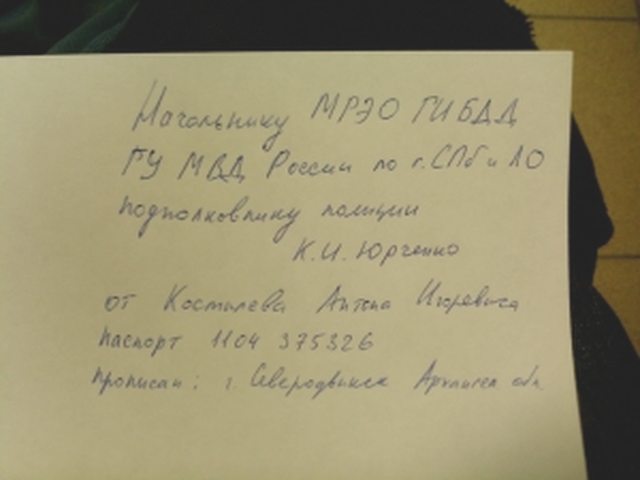 Начальнику МРЭО ГИБДД
ГУ МВД России по г. СПб и ЛО
подполковнику полиции
К.И. Юрченко
от Костылева Антона Игоревича
паспорт 1104 375326
прописан: г. Северодвинск Архангел обл.